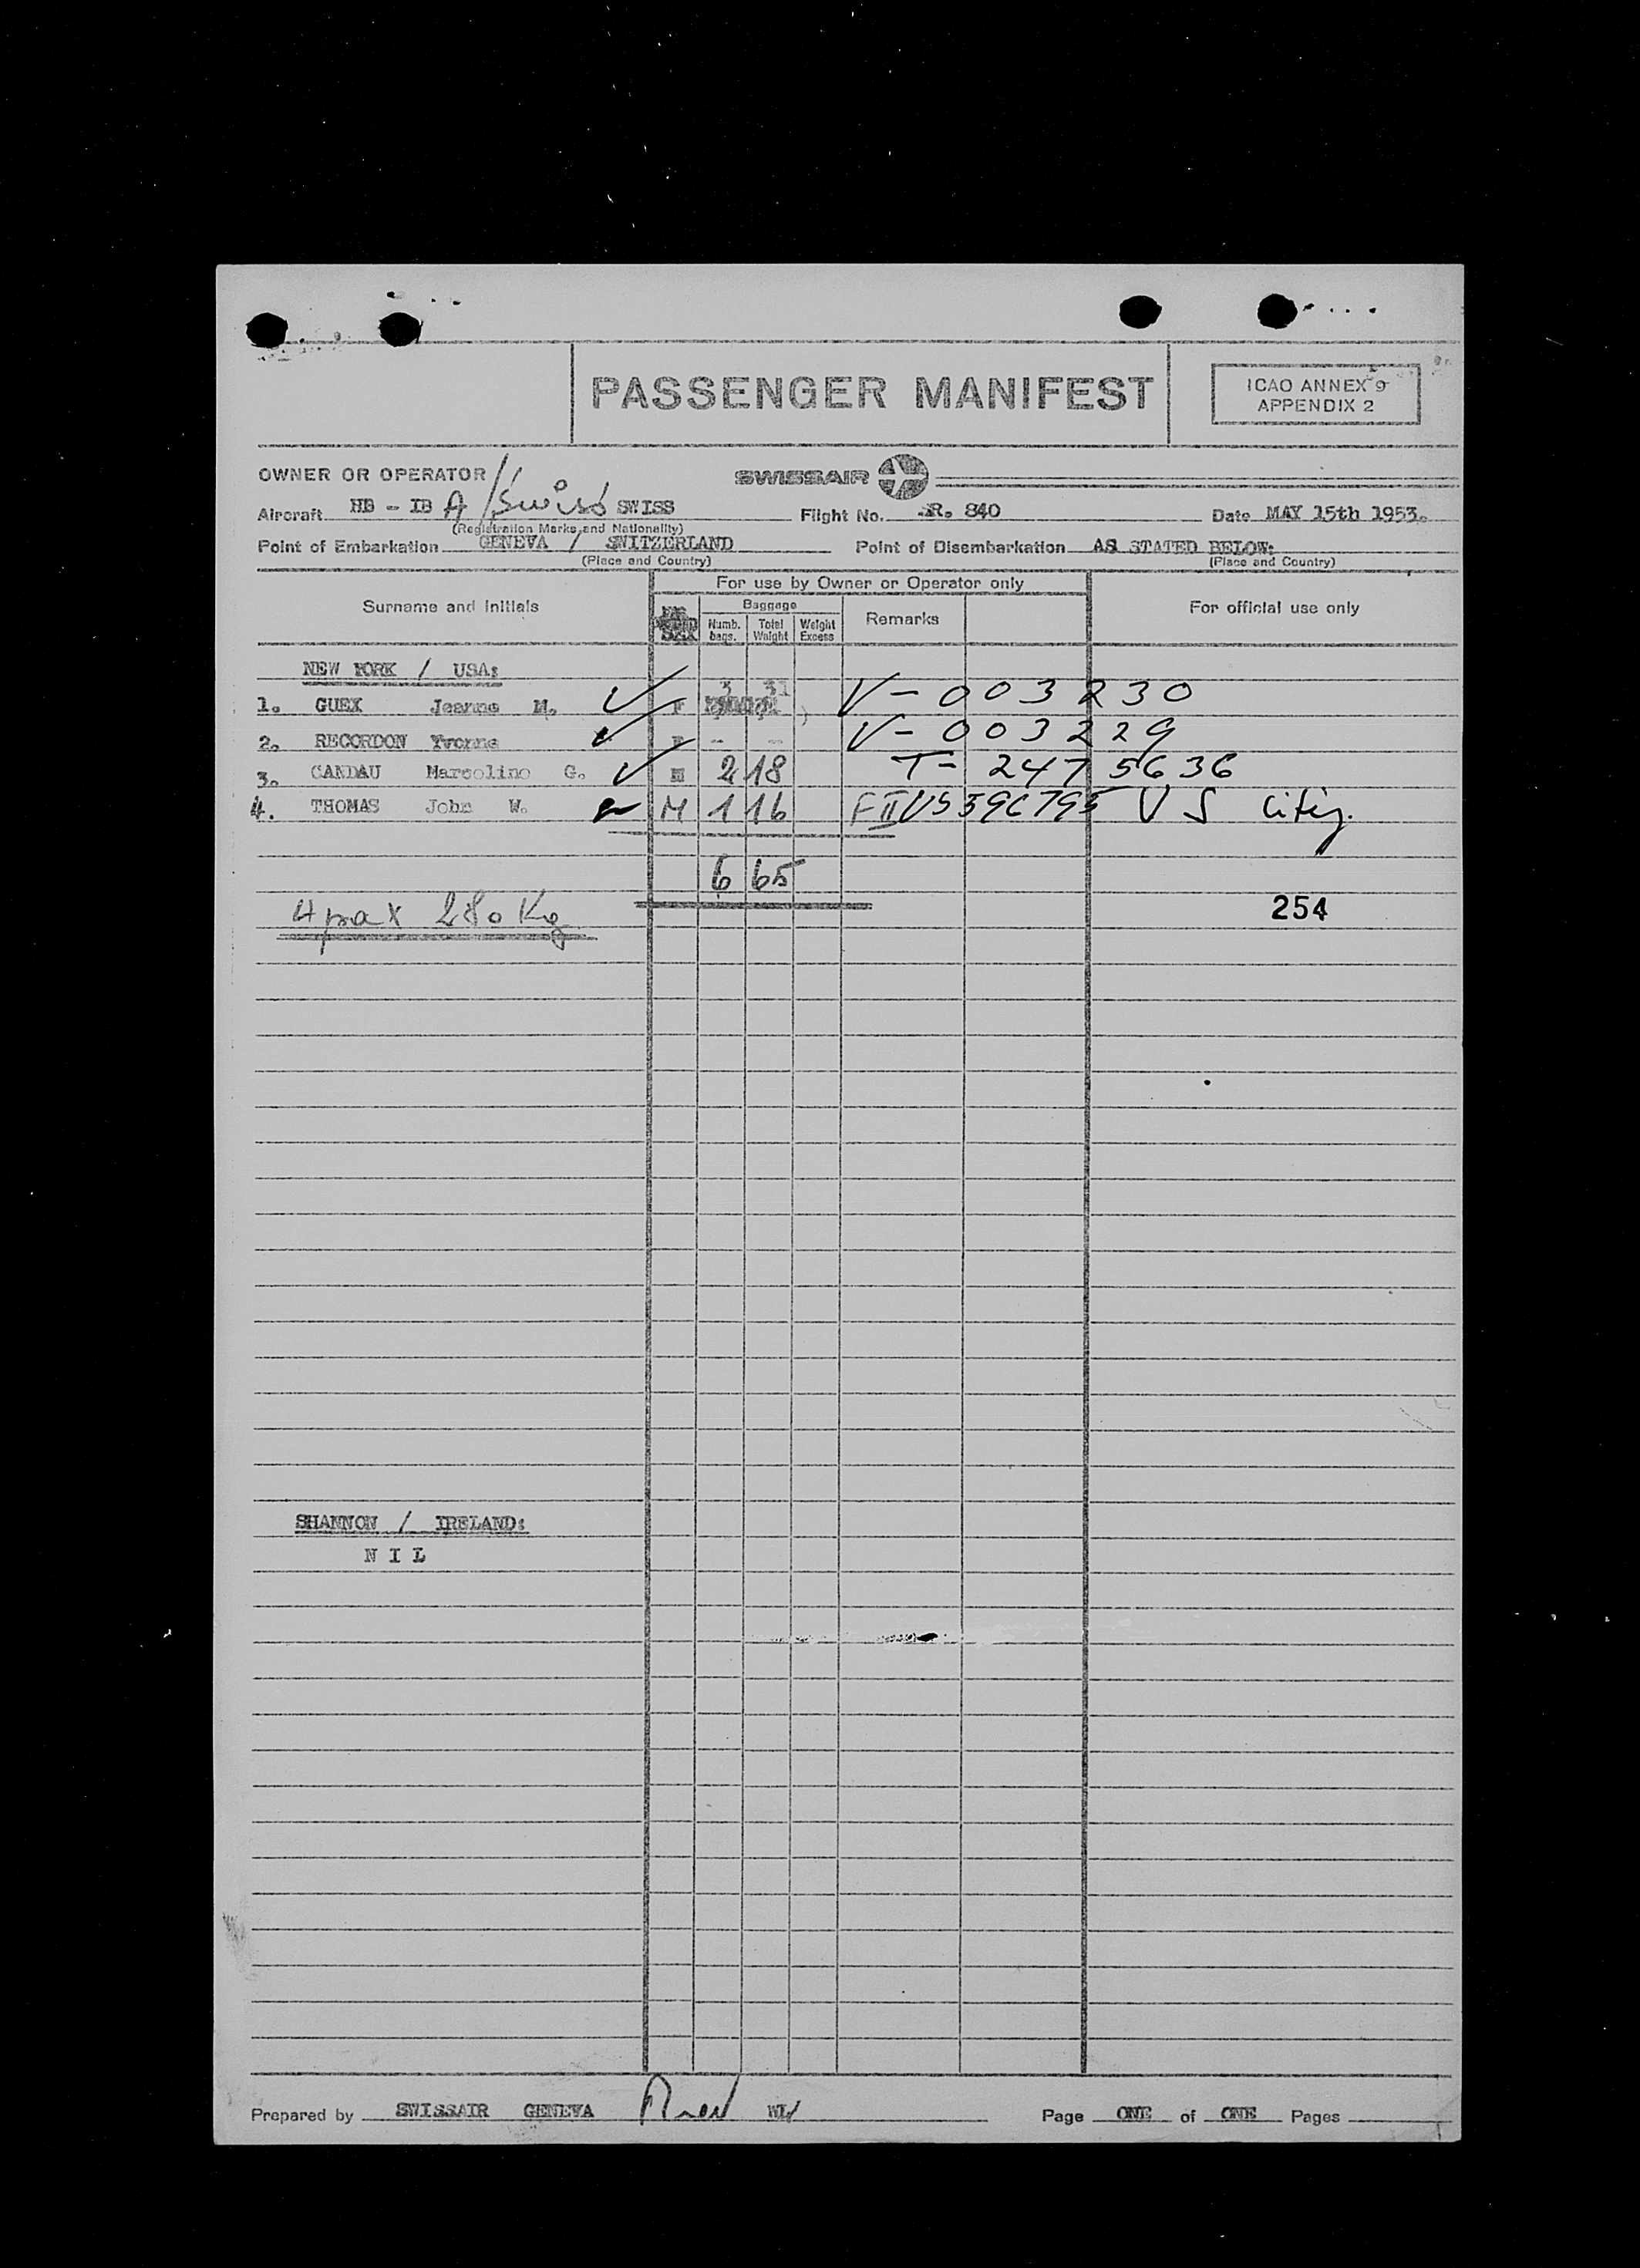 PASSENGER MANIFEST
ICAO ANNEX 9
APPENDIX 2
OWNER OR OPERATOR
SWISSAIR
Aircraft HB - IB A / Swiss SWISS
Flight No. SR. 840
Date MAY 15th 1953.
(Registration Marks and Nationality)
Point of Embarkation GENEVA / SWITZERLAND
Point of Disembarkation AS STATED BELOW:
(Place and Country)
(Place and Country)
For use by Owner or Operator only
Surname and Initials
Baggage
Numb. bags.
Total Weight
Weight Excess
Remarks
For official use only
NEW YORK / USA:
1. GUEX Jeanne M. F 3 31 V - 003230
2. RECORDON Yvonne F - - V - 003229
3. CANDAU Marcolino G. M 2 18 T - 2475636
4. THOMAS John W. M 1 16 F II US 396795 U S citiz.
6 65
4 pax 280 Kg
254
SHANNON / IRELAND:
N I L
Prepared by SWISSAIR GENEVA
Page ONE of ONE Pages